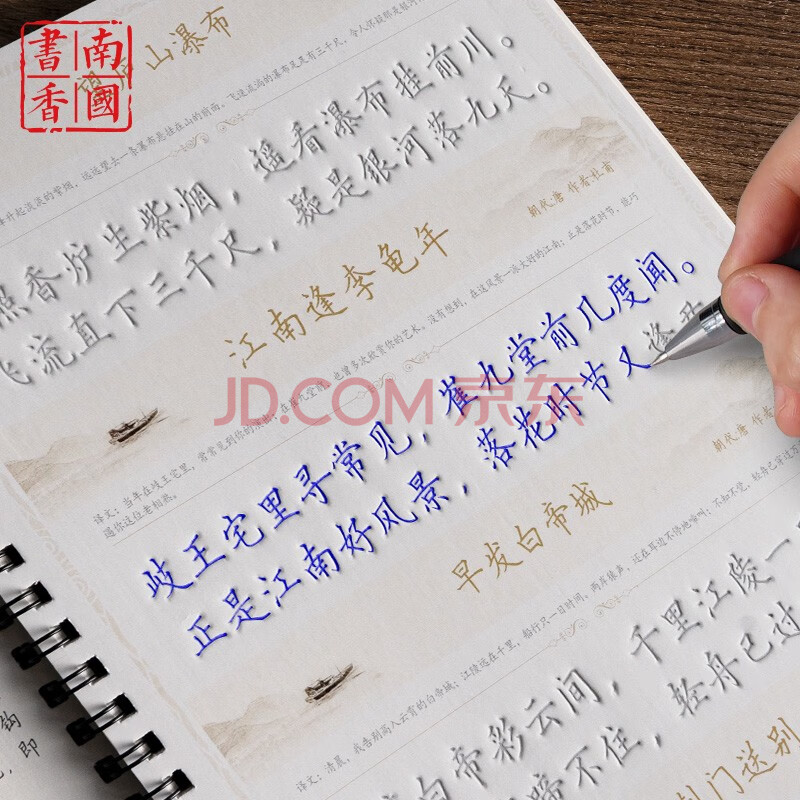 南國書香
望庐山瀑布
照香炉生紫烟，遥看瀑布挂前川。
飞流直下三千尺，疑是银河落九天。
朝代:唐 作者:杜甫
江南逢李龟年
岐王宅里寻常见，崔九堂前几度闻。
正是江南好风景，落花时节又逢君
JD.COM 京东
译文：当年在岐王宅里，常常见到你的演出；在崔九堂前，也曾多次欣赏你的艺术。没有想到，在这风景一派大好的江南；正是落花时节，能巧
遇你这位老相熟。
朝代:唐 作者:
早发白帝城
白帝彩云间，千里江陵一
啼不住，轻舟已过
译文：清晨，我告别高入云霄的白帝城；江陵远在千里，船行只一日时间。两岸猿声，还在耳边不停地啼叫；不知不觉，轻舟已穿过万
荆门送别